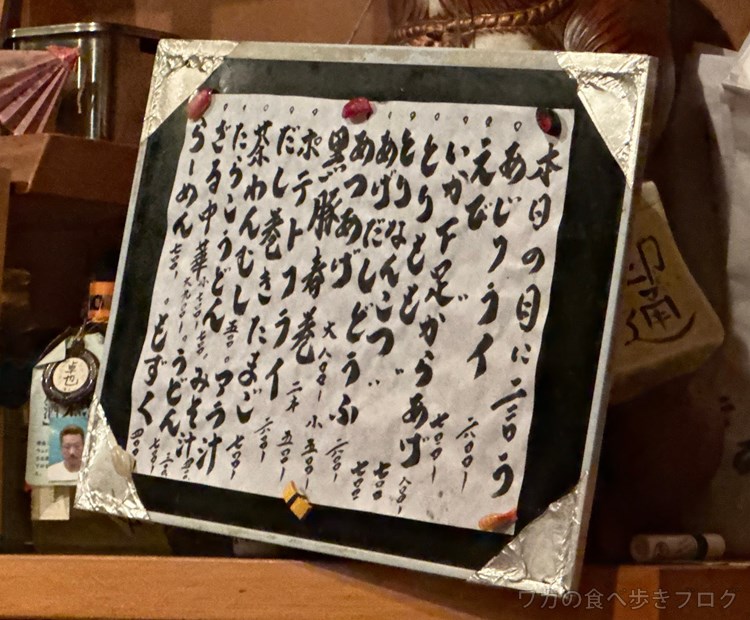 本日の目に言う
あじフライ
えび
いか下足からあげ 七〇〇
とりもも 八〇〇
とりなんこつ 七〇〇
あげだしどうふ 七〇〇
あつあげ 六〇〇
黒豚春巻 大 八〇〇 小 五〇〇
ポテトフライ 五〇〇
だし巻きたまご 七〇〇
茶わんむし 五〇〇 アラ汁
たらこうどん みそ汁
ざる中華 うどん
らーめん 七〇〇 もずく 四〇〇
通
ワカの食べ歩きブログ